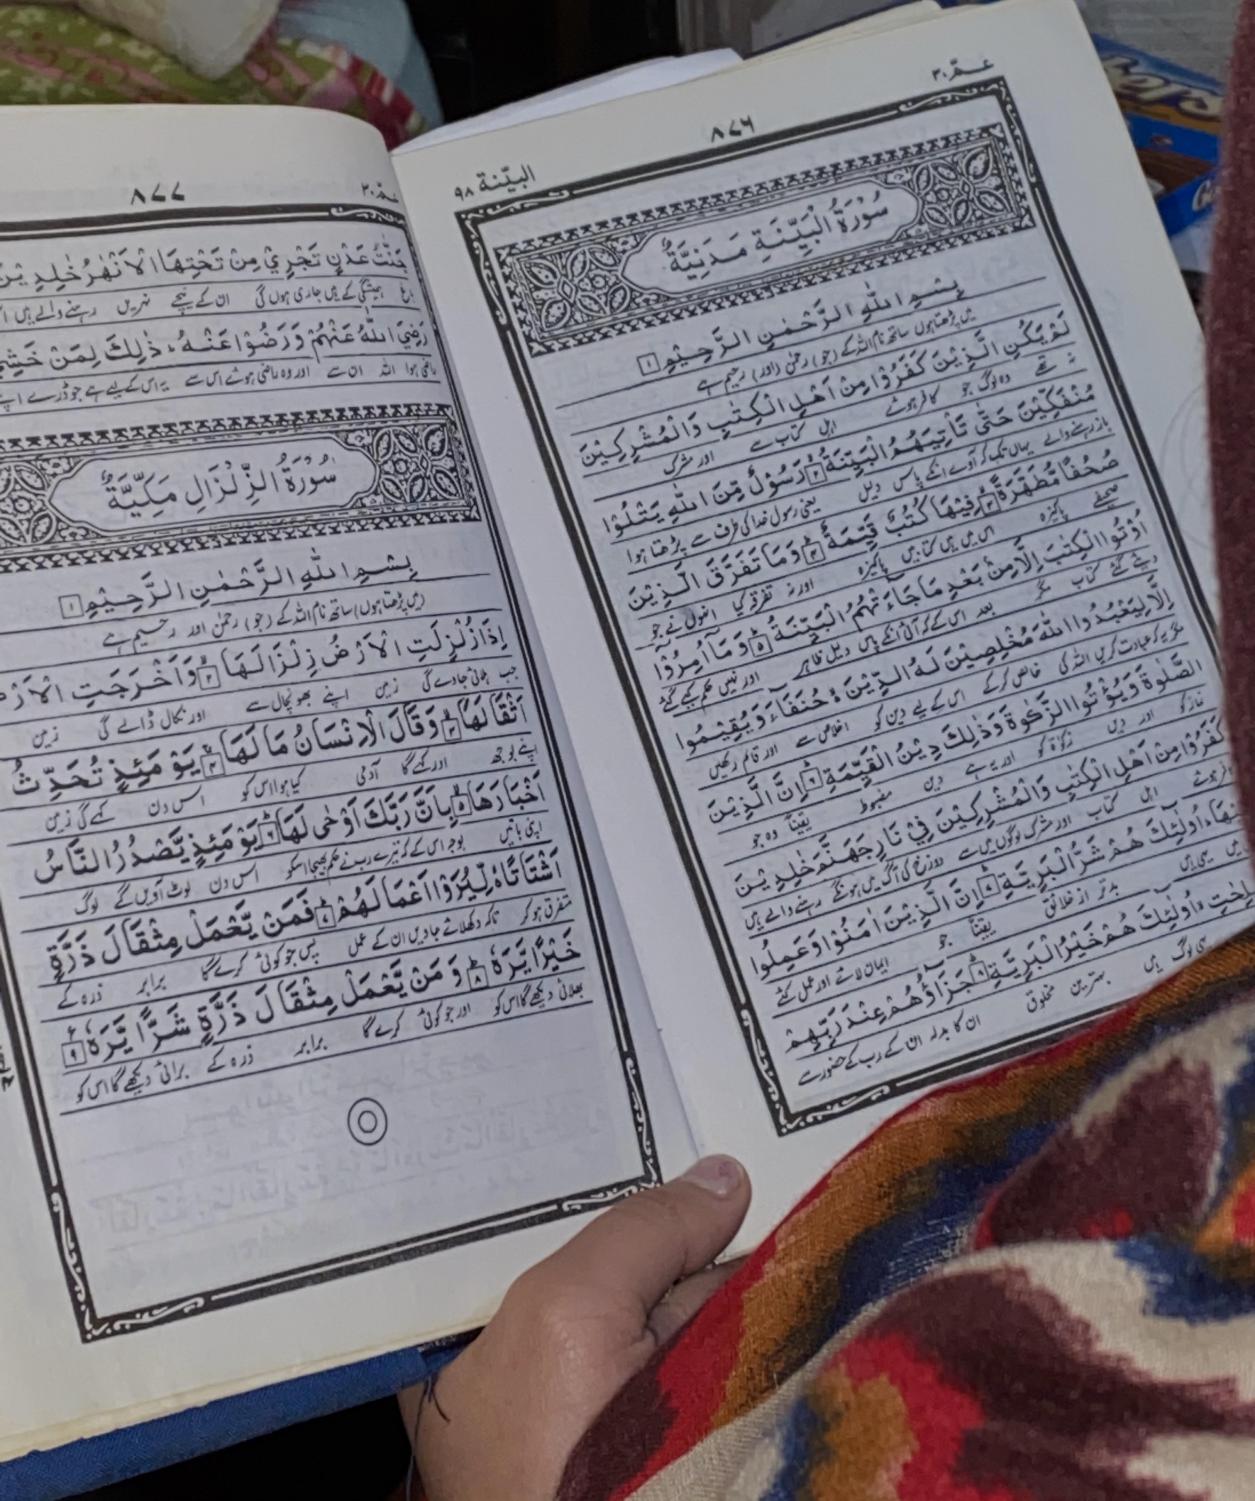 عمّ ٣٠
٨٧٦
البيّنة ٩٨
سُوْرَةُ الْبَيِّنَةِ مَدَنِيَّةٌ
بِسْمِ اللهِ الرَّحْمٰنِ الرَّحِيْمِ ١
میں پڑھتا ہوں ساتھ نام اللہ کے (جو) رحمٰن (اور) رحیم ہے
لَمْ يَكُنِ الَّذِيْنَ كَفَرُوْا مِنْ اَهْلِ الْكِتٰبِ وَالْمُشْرِكِيْنَ
نہ تھے وہ لوگ جو کافر ہوئے اہل کتاب سے اور مشرک
مُنْفَكِّيْنَ حَتّٰى تَاْتِيَهُمُ الْبَيِّنَةُ ٢ رَسُوْلٌ مِّنَ اللهِ يَتْلُوْا
باز رہنے والے یہاں تک کہ آوے انکے پاس دلیل یعنی رسول خدا کی طرف سے پڑھتا ہوا
صُحُفًا مُّطَهَّرَةً ٣ فِيْهَا كُتُبٌ قَيِّمَةٌ ٤ وَمَا تَفَرَّقَ الَّذِيْنَ
صحیفے پاکیزہ اس میں ہیں کتابیں پاکیزہ اور نہ تفرقہ کیا انھوں نے جو
اُوْتُوا الْكِتٰبَ اِلَّا مِنْ بَعْدِ مَا جَآءَتْهُمُ الْبَيِّنَةُ ٥ وَمَآ اُمِرُوْٓا
دیئے گئے کتاب مگر بعد اس کے کہ آئی انکے پاس دلیل ظاہر اور نہیں حکم کیے گئے
اِلَّا لِيَعْبُدُوا اللهَ مُخْلِصِيْنَ لَهُ الدِّيْنَ ۙ حُنَفَآءَ وَيُقِيْمُوا
مگر یہ کہ عبادت کریں اللہ کی خالص کرکے اس کے لیے دین کو اخلاص سے اور قائم رکھیں
الصَّلٰوةَ وَيُؤْتُوا الزَّكٰوةَ وَذٰلِكَ دِيْنُ الْقَيِّمَةِ ٦ اِنَّ الَّذِيْنَ
نماز کو اور دیں زکوٰۃ کو اور یہ ہے دین مضبوط یقیناً وہ جو
كَفَرُوْا مِنْ اَهْلِ الْكِتٰبِ وَالْمُشْرِكِيْنَ فِيْ نَارِ جَهَنَّمَ خٰلِدِيْنَ
کافر ہوئے اہل کتاب اور مشرک لوگوں میں سے دوزخ کی آگ میں ہونگے رہنے والے ہیں
اُولٰٓئِكَ هُمْ شَرُّ الْبَرِيَّةِ ٧ اِنَّ الَّذِيْنَ اٰمَنُوْا وَعَمِلُوا
یہی ہیں بدتر از خلائق یقیناً جو ایمان لائے اور عمل کئے
اُولٰٓئِكَ هُمْ خَيْرُ الْبَرِيَّةِ ٨ جَزَآؤُهُمْ عِنْدَ رَبِّهِمْ
لوگ ہیں بہترین مخلوق ان کا بدلہ ان کے رب کے حضور سے
عمّ ٣٠
٨٧٧
جَنّٰتُ عَدْنٍ تَجْرِيْ مِنْ تَحْتِهَا الْاَنْهٰرُ خٰلِدِيْنَ
باغ ہمیشگی کے ہیں جاری ہوں گی ان کے نیچے نہریں رہنے والے ہیں
رَضِيَ اللهُ عَنْهُمْ وَرَضُوْا عَنْهُ ؕ ذٰلِكَ لِمَنْ خَشِيَ
راضی ہوا اللہ ان سے اور وہ راضی ہوئے اس سے یہ اس کے لیے ہے جو ڈرے اپنے
سُوْرَةُ الزِّلْزَالِ مَكِّيَّةٌ
بِسْمِ اللهِ الرَّحْمٰنِ الرَّحِيْمِ ١
(میں پڑھتا ہوں) ساتھ نام اللہ کے (جو) رحمٰن اور رحیم ہے
اِذَا زُلْزِلَتِ الْاَرْضُ زِلْزَالَهَا ٢ وَاَخْرَجَتِ الْاَرْضُ
جب ہلائی جاوے گی زمین اپنے بھونچال سے اور نکال ڈالے گی زمین
اَثْقَالَهَا ٣ وَقَالَ الْاِنْسَانُ مَا لَهَا ٤ يَوْمَئِذٍ تُحَدِّثُ
اپنے بوجھ اور کہے گا آدمی کیا ہوا اس کو اس دن کہے گی زمین
اَخْبَارَهَا ٥ بِاَنَّ رَبَّكَ اَوْحٰى لَهَا ٦ يَوْمَئِذٍ يَّصْدُرُ النَّاسُ
اپنی باتیں بوجہ اس کے کہ تیرے رب نے حکم بھیجا اسکو اس دن لوٹ آویں گے لوگ
اَشْتَاتًا ۙ لِّيُرَوْا اَعْمَالَهُمْ ٧ فَمَنْ يَّعْمَلْ مِثْقَالَ ذَرَّةٍ
متفرق ہو کر تاکہ دکھلائے جاویں ان کے عمل پس جو کوئی کرے گا برابر ذرہ کے
خَيْرًا يَّرَهٗ ٨ وَمَنْ يَّعْمَلْ مِثْقَالَ ذَرَّةٍ شَرًّا يَّرَهٗ ٩
بھلائی دیکھے گا اس کو اور جو کوئی کرے گا برابر ذرہ کے برائی دیکھے گا اس کو